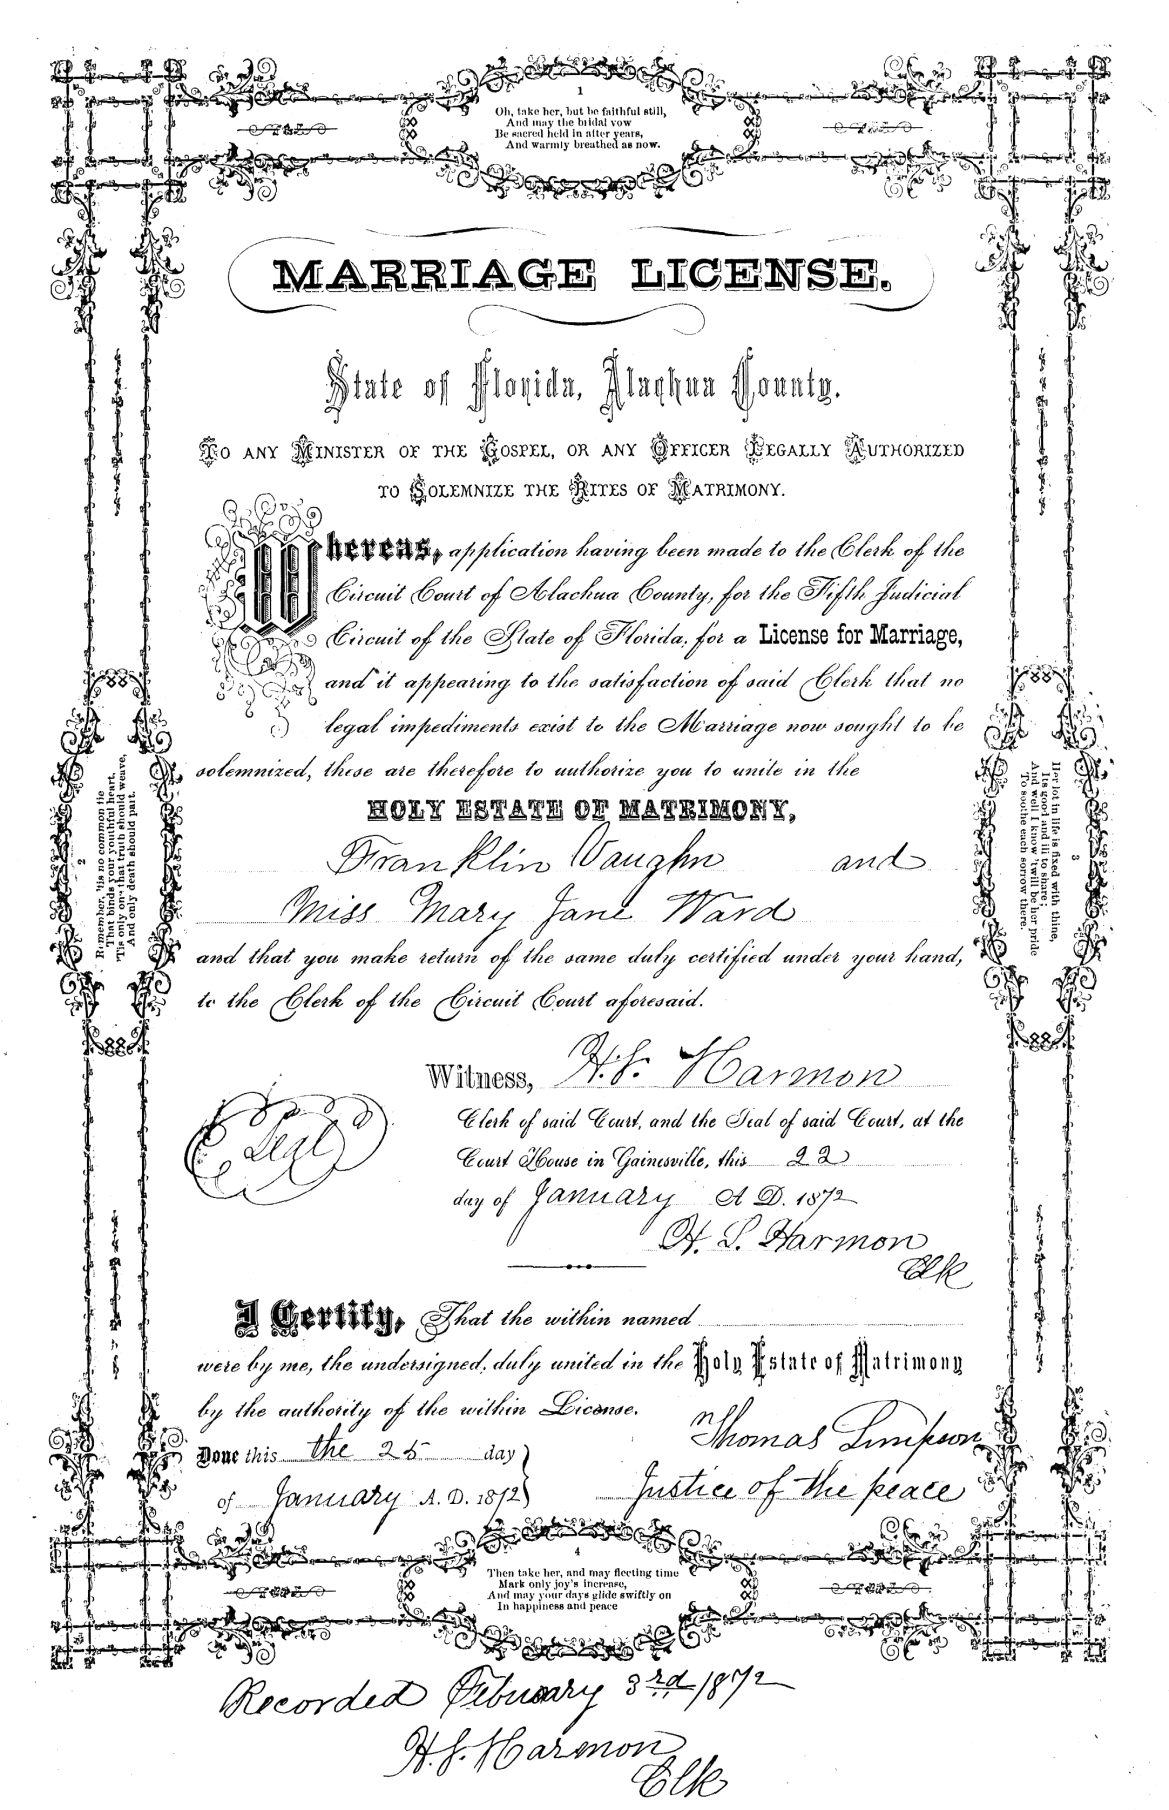 1
Oh, take her, but be faithful still,
And may the bridal vow
Be sacred held in after years,
And warmly breathed as now.
MARRIAGE LICENSE.
State of Florida, Alachua County.
TO ANY MINISTER OF THE GOSPEL, OR ANY OFFICER LEGALLY AUTHORIZED
TO SOLEMNIZE THE RITES OF MATRIMONY.
Whereas, application having been made to the Clerk of the
Circuit Court of Alachua County, for the Fifth Judicial
Circuit of the State of Florida, for a License for Marriage,
and it appearing to the satisfaction of said Clerk that no
legal impediments exist to the Marriage now sought to be
solemnized, these are therefore to authorize you to unite in the
HOLY ESTATE OF MATRIMONY,
Franklin Vaughn and
Miss Mary Jane Ward
and that you make return of the same duly certified under your hand,
to the Clerk of the Circuit Court aforesaid.
Witness, H. S. Harmon
Seal
Clerk of said Court, and the Seal of said Court, at the
Court House in Gainesville, this 22
day of January A D. 1872
H. S. Harmon
Clk
I Certify, That the within named
were by me, the undersigned, duly united in the Holy Estate of Matrimony
by the authority of the within License.
Thomas Simpson
Done this the 25 day
of January A. D. 1872
Justice of the peace
2
Remember, 'tis no common tie
That binds your youthful heart,
'Tis only one that truth should weave,
And only death should part.
3
Her lot in life is fixed with thine,
Its good and ill to share;
And well I know 'twill be her pride
To soothe each sorrow there.
4
Then take her, and may fleeting time
Mark only joy's increase,
And may your days glide swiftly on
In happiness and peace
Recorded Febuary 3rd 1872
H. S. Harmon
Clk